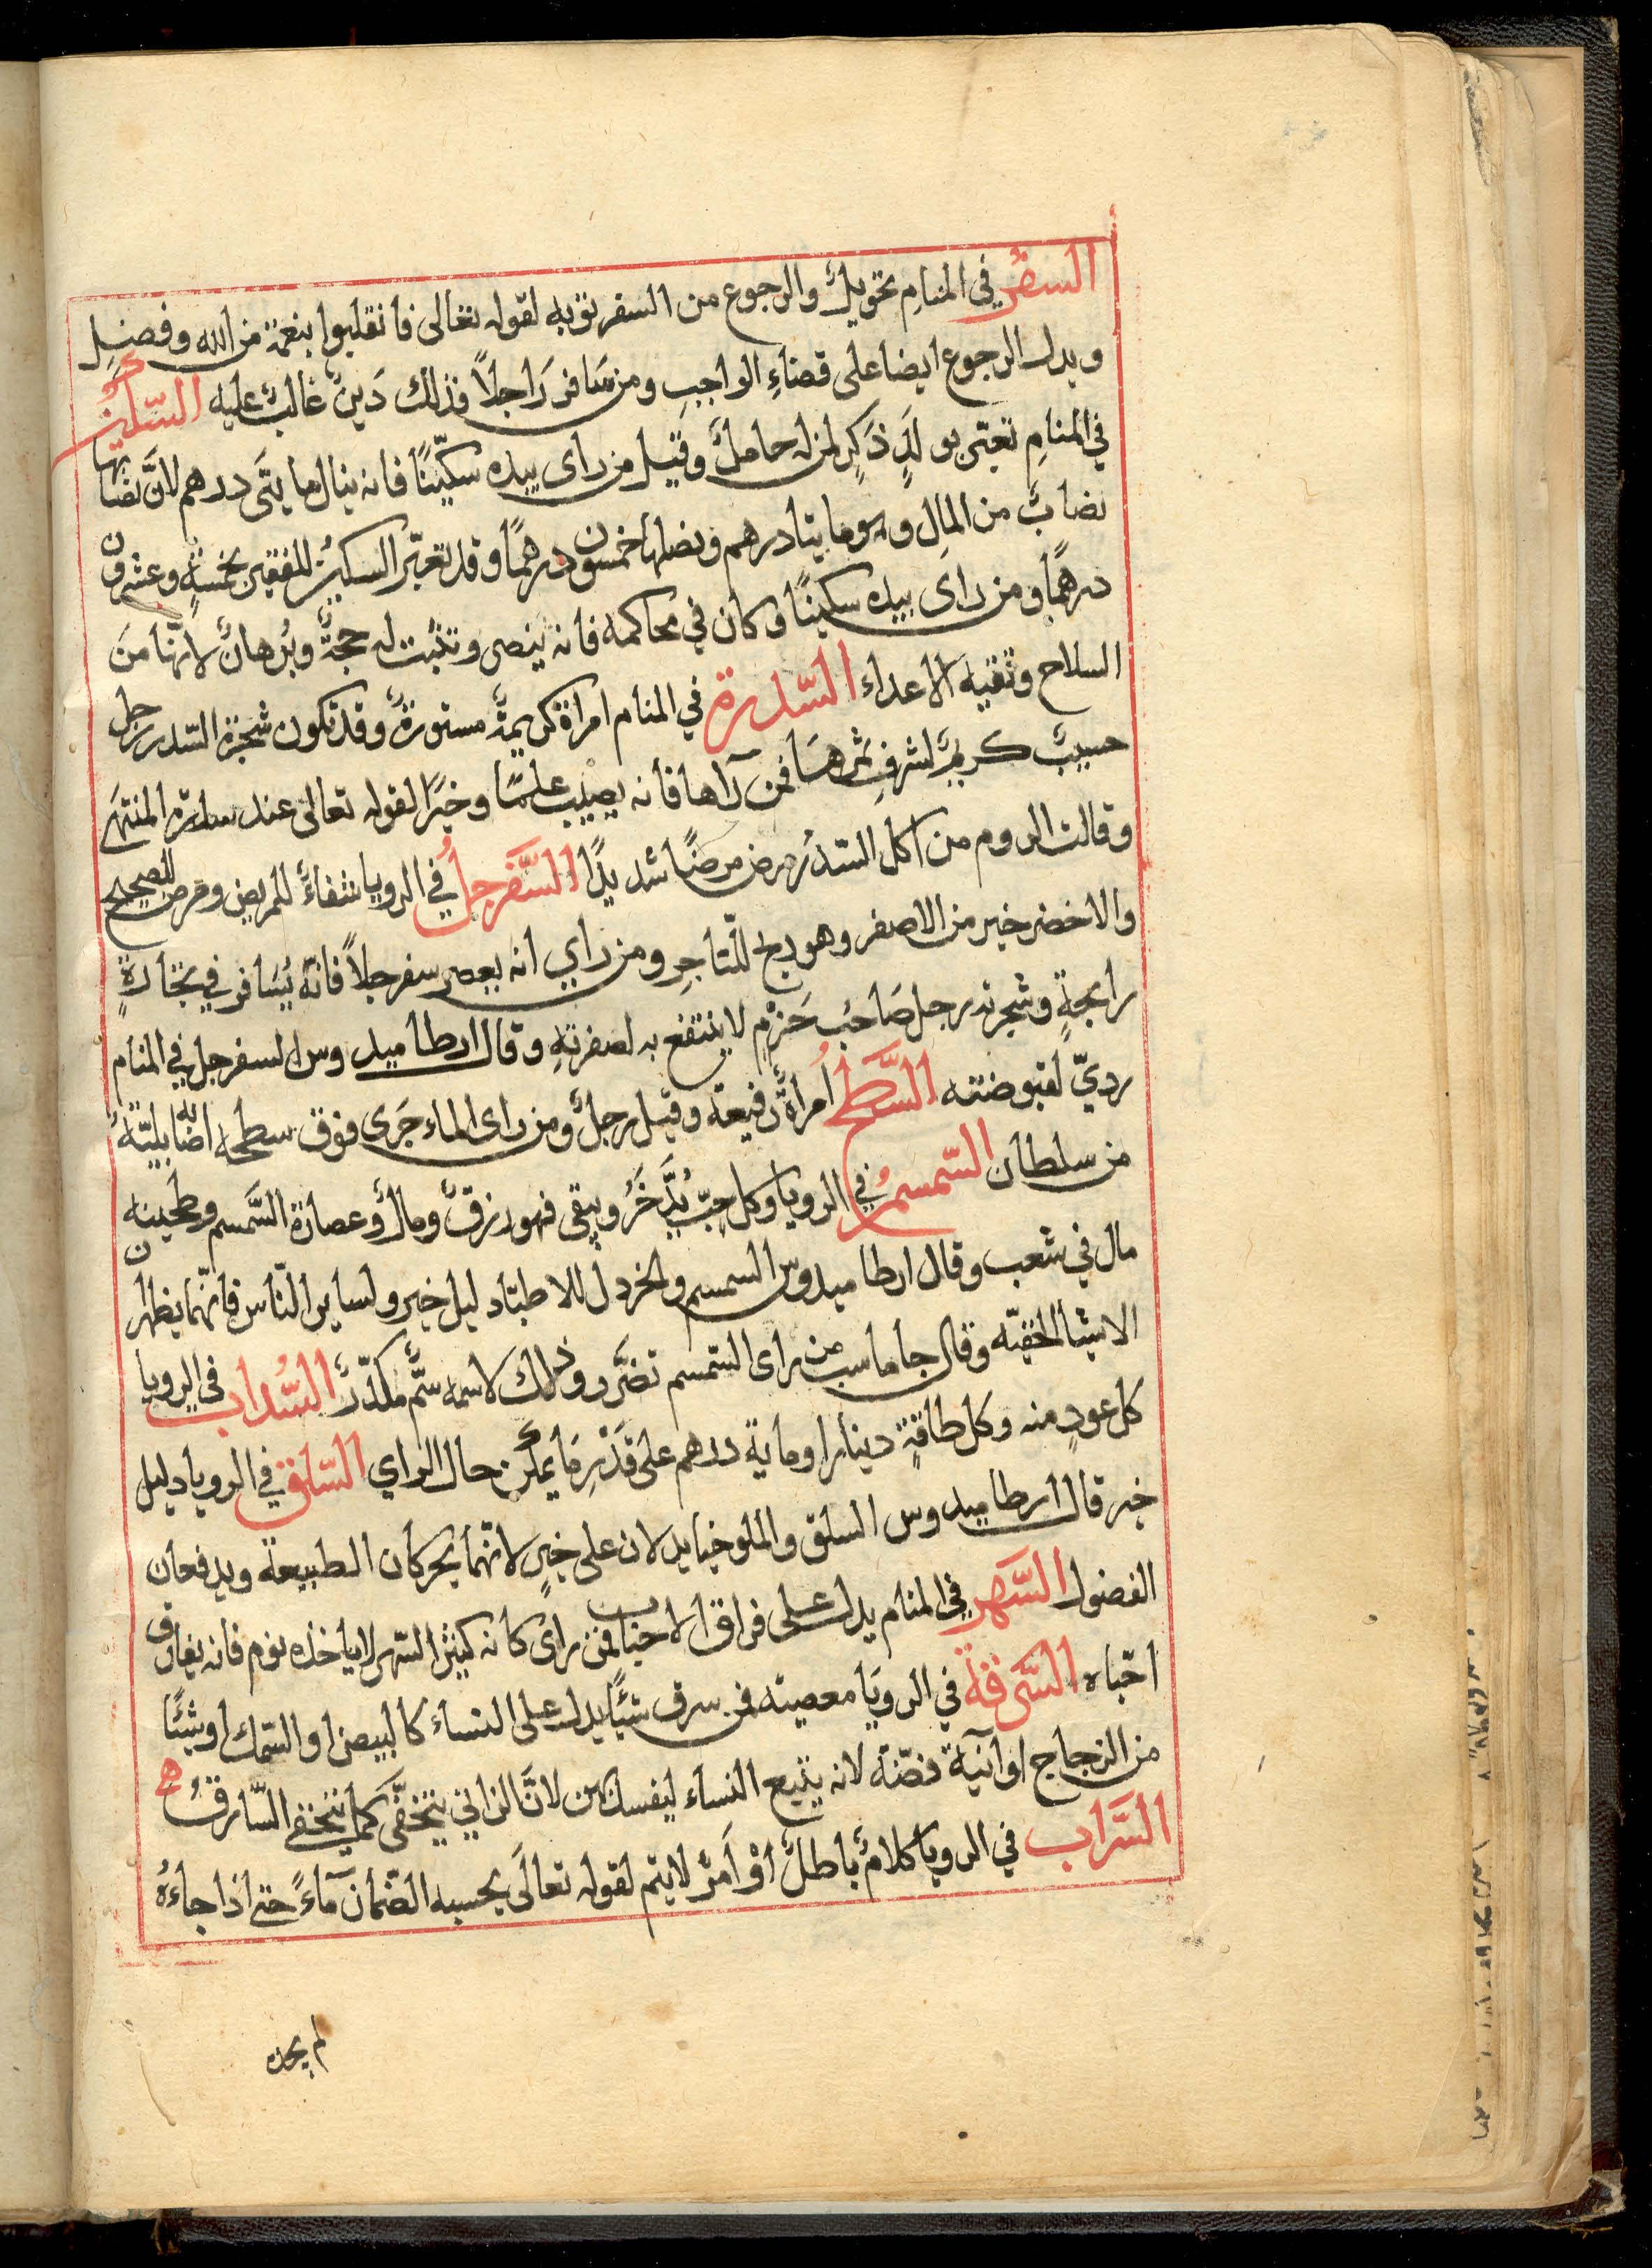 السفر في المنامِ تحويلٌ والرجوع من السفر توبه لقوله تعالى فانقلبوا بنعمة من الله وفضلٍ
ويدل الرجوع ايضا على قضاءِ الواجبِ ومن سَافر رَاجلاً فذلك دَينٌ غالبٌ عليه السّكين
في المنامِ تعبّر بولَدٍ ذَكَرٍ لمن له حاملٌ وقيل من راى بيده سكّينًا فانه ينال مايتَى درهم لانَّ نصابها
نصابٌ من المالِ وهو مايتا درهم ونصلها خمسون درهمًا وقد تعبّر السكين للفقير بخمسةٍ وعشرون
درهمًا ومن راى بيده سكينًا وكان في محاكمه فانه ينصر وتثبت له حجةٌ وبُرهانٌ لانّها مَن
السلاح وتقيه الاعداء السّدرة في المنام امراة كريمةٌ مستورةٌ وقد تكون شجرة السّدر رجل
حسيبٌ كريمٌ لشرفِ ثمرهَا فمن رآها فانه يصيب علمًا وخيرًا لقوله تعالى عند سدرة المنتهَى
وقالت الروم من اكل السّدرُ مرض مرضًا شديدًا السَّفرجلُ في الرويا شفاءٌ للمريض ومرض للصحيح
والاخضر خير من الاصفر وهو ربح للتّاجرِ ومن راي انه يعصر سفرجلاً فانّه يُسَافر في تجَارةٍ
رابحةٍ وشجرته رجل صَاحبُ حَزْمٍ لا ينتفع به لصفرتهِ وقال ارطاميدوس السفرجل في المنام
رديّ لقبوضته السَّطحُ امراةٌ رفيعة وقيل رجلٌ ومن راى الماء جَرى فوق سطحه اصَابَته بليّةٌ
من سلطان السّمسمُ في الرويا وكل حبّ يُدَّخَرُ ويبقى فهو رزقٌ ومالٌ وعصارة السَّمسم وطحينه
مال في شعب وقال ارطاميدوس السمسم والخردل للاطبّاء دليل خير ولساير النّاس فانّهما يظهران
الاشيا الخفيّه وقال جاماسب من راى السّمسم تضَّرر وذلك لاسمه سَمٌّ مكدّرٌ السَّداب في الرويا
كل عودٍ منه وكل طاقةٍ دينارا وماية درهم على قَدْرِ مَا يمكن حال الراي السّلق في الرويا دليل
خير قال ارطاميدوس السلق والملوخيا يدلان على خيرٍ لانّهما يحركان الطبيعة ويدفعان
الفضول السَّهر في المنام يدل على فراق الاحباب فمن راى كانه كثير السّهر لاياخذه نوم فانه يفارق
احبّاه السَّرقة في الرويَا معصيته فمن سرق شيئًا يدل على النساء كالبيض او السّمك او شيئًا
من الزجاج او آنية فضّة لانه يتبع النساء ليفسدهن لانَّ الزاني يتخفَّى كما يتخفى السّارق
السَّراب في الرويا كلامٌ باطلٌ اوْ اَمرٌ لايتم لقوله تعالَى يحسبه الضّمان مآءً حتى اذا جاءهُ
لم يجده